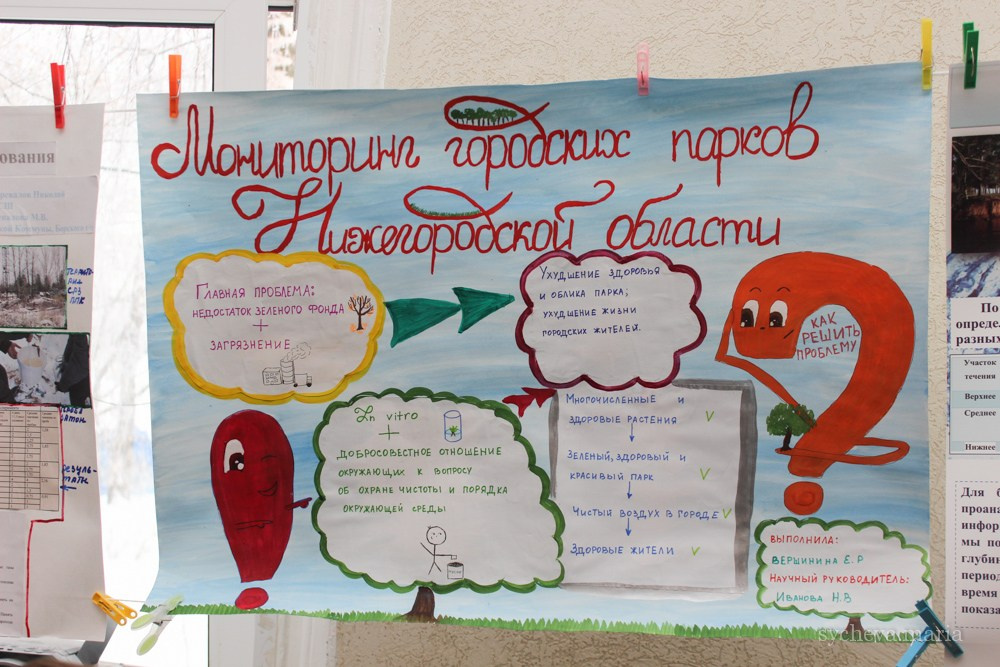 Мониторинг городских парков
Нижегородской области
Главная проблема:
недостаток зеленого фонда
+
загрязнение
Ухудшение здоровья
и облика парка;
ухудшение жизни
городских жителей.
как
решить
проблему
In vitro
+
добросовестное отношение
окружающих к вопросу
об охране чистоты и порядка
окружающей среды
Многочисленные и
здоровые растения
Зеленый, здоровый и
красивый парк
Чистый воздух в городе
Здоровые жители
выполнила:
Вершинина Е.Р
научный руководитель:
Иванова Н.В
ования
По
определ
разных
Участок
течения
Верхнее
Среднее
Нижнее
Для
проана
инфор
мы по
глубин
период
время
показа
sychevatmaria